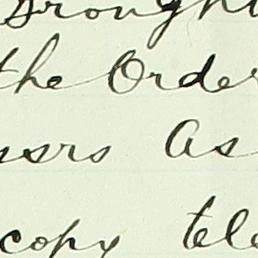 brought
the Order
ssrs As
copy tele